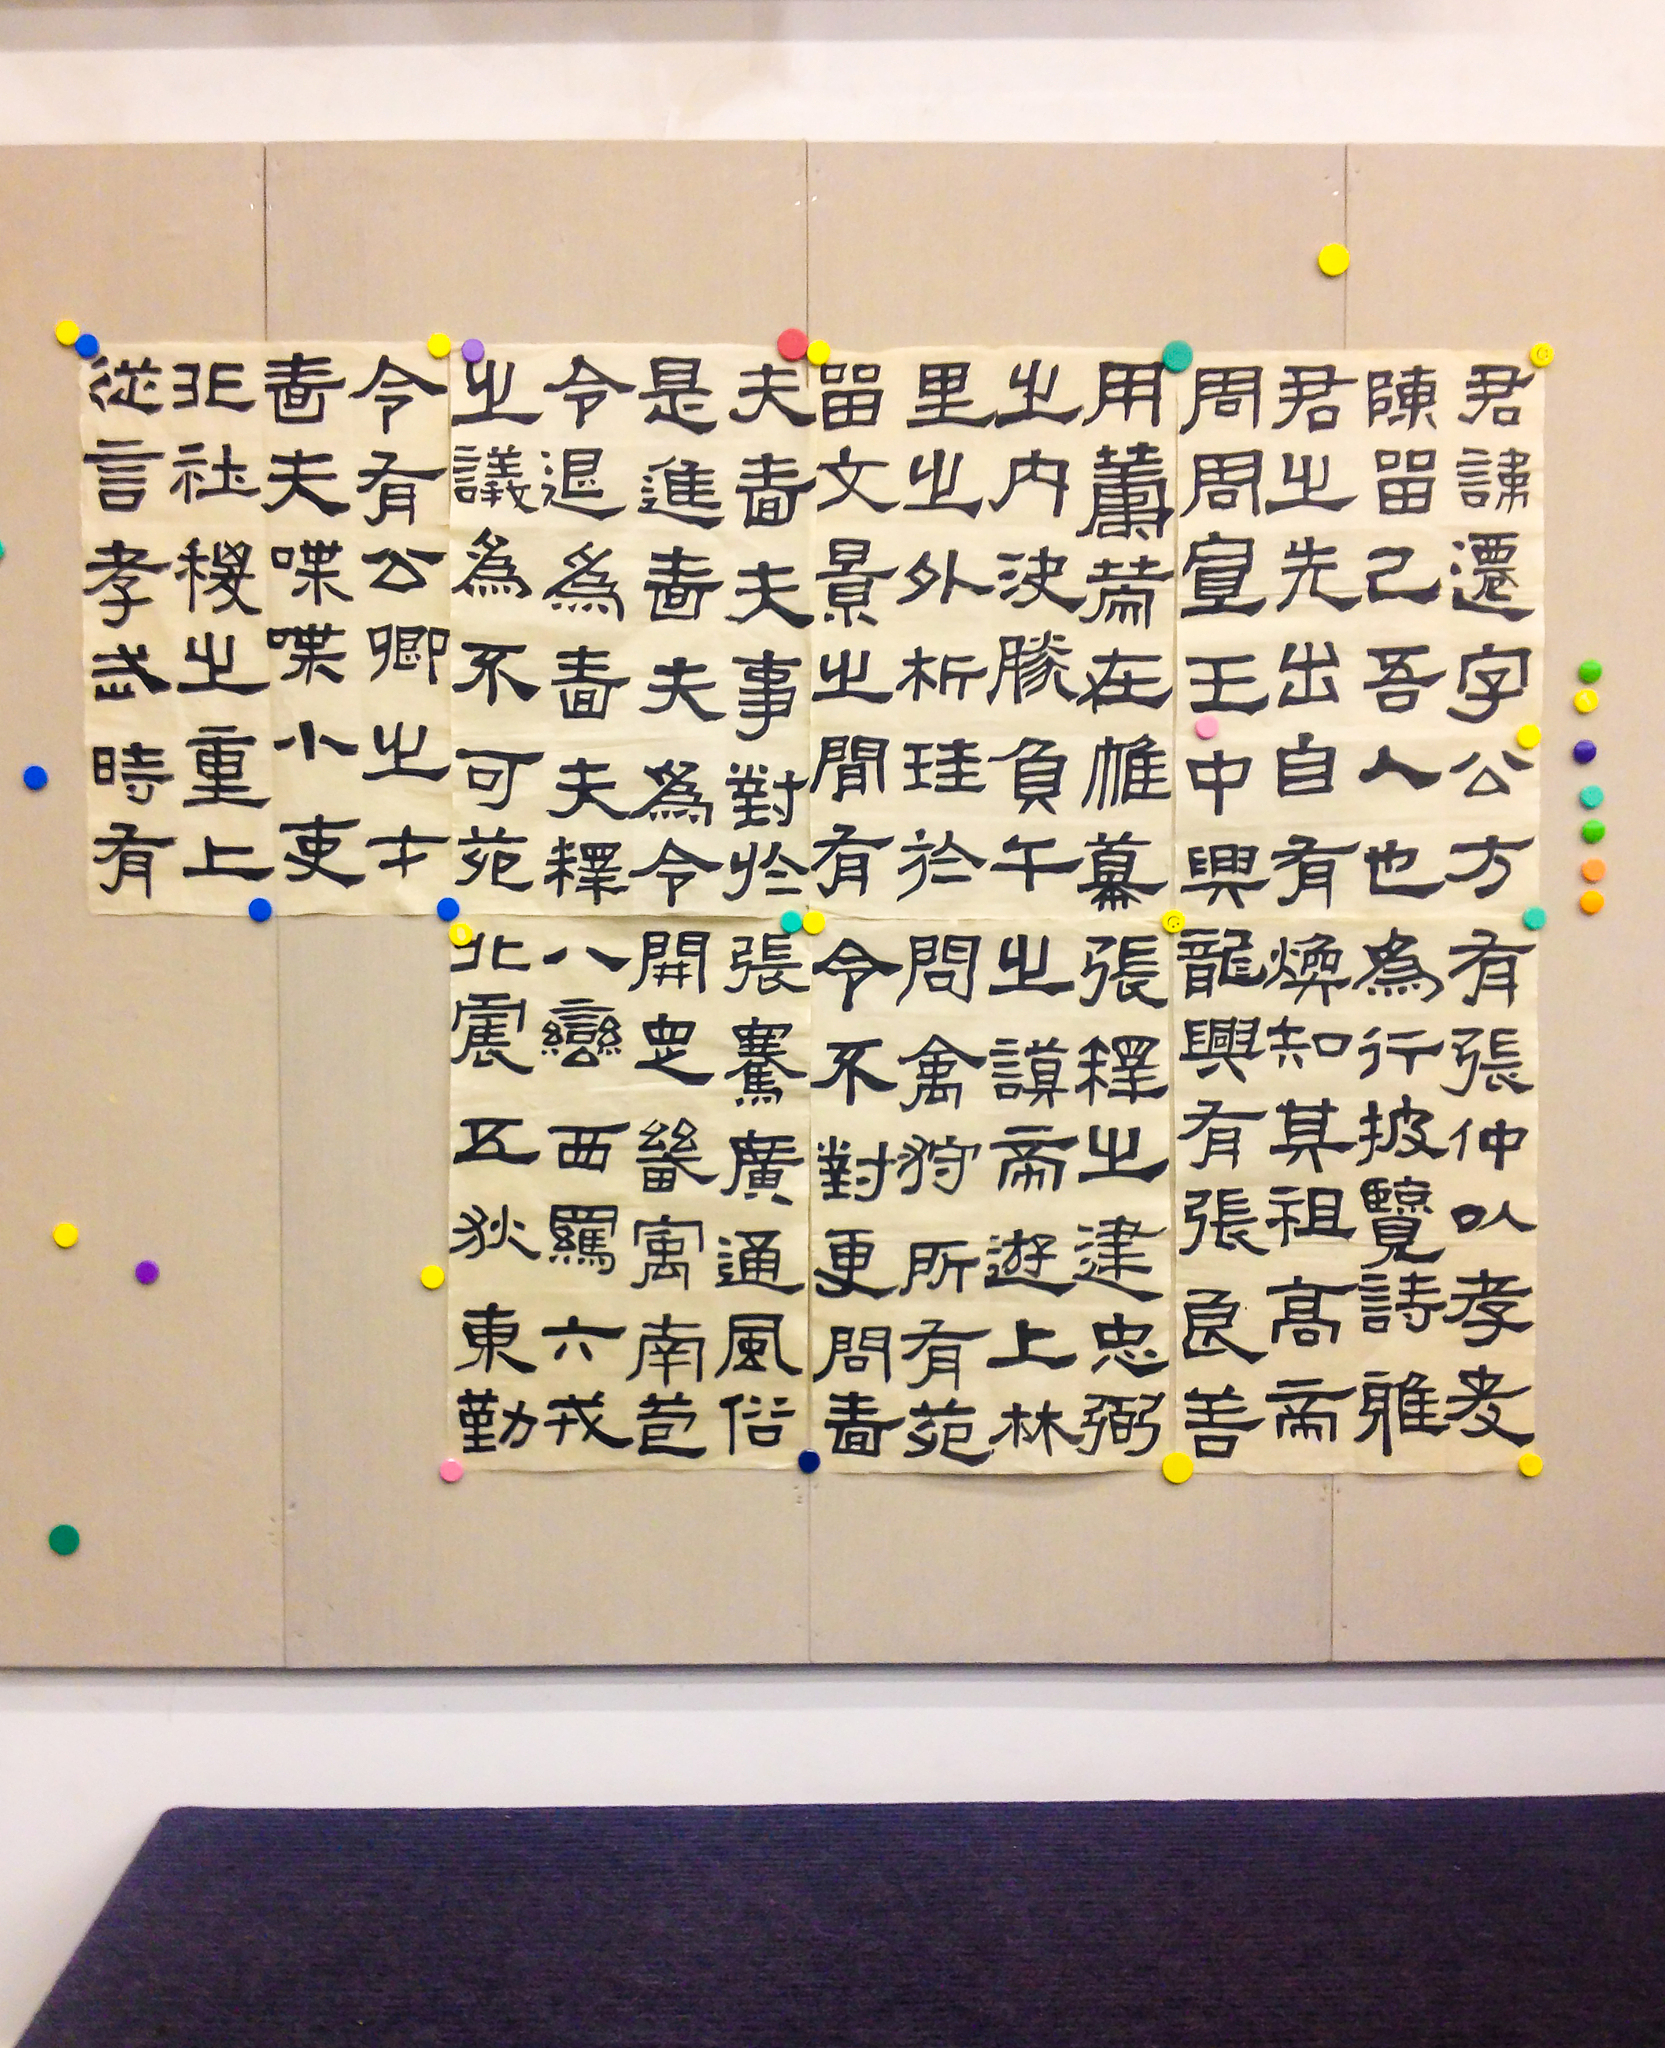 君諱遷字公方
陳留己吾人也
君之先出自有
周周宣王中興
有張仲以孝友
為行披覽詩雅
煥知其祖高帝
龍興有張良善
用籌策在帷幕
之內決勝負千
里之外析珪於
留文景之間有
張釋之建忠弼
之謨帝遊上林
問禽狩所有苑
令不對更問嗇
夫嗇夫事對於
是進嗇夫為令
令退為嗇夫釋
之議為不可苑
令有公卿之才
嗇夫喋喋小吏
非社稷之重上
從言孝武時有
張騫廣通風俗
開定畿寓南苞
八蠻西羈六戎
北震五狄東勤